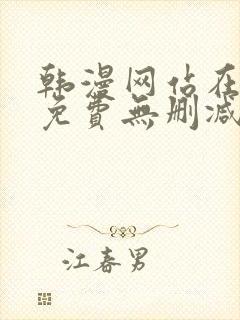 韩漫网站在
免費無删减
江春男